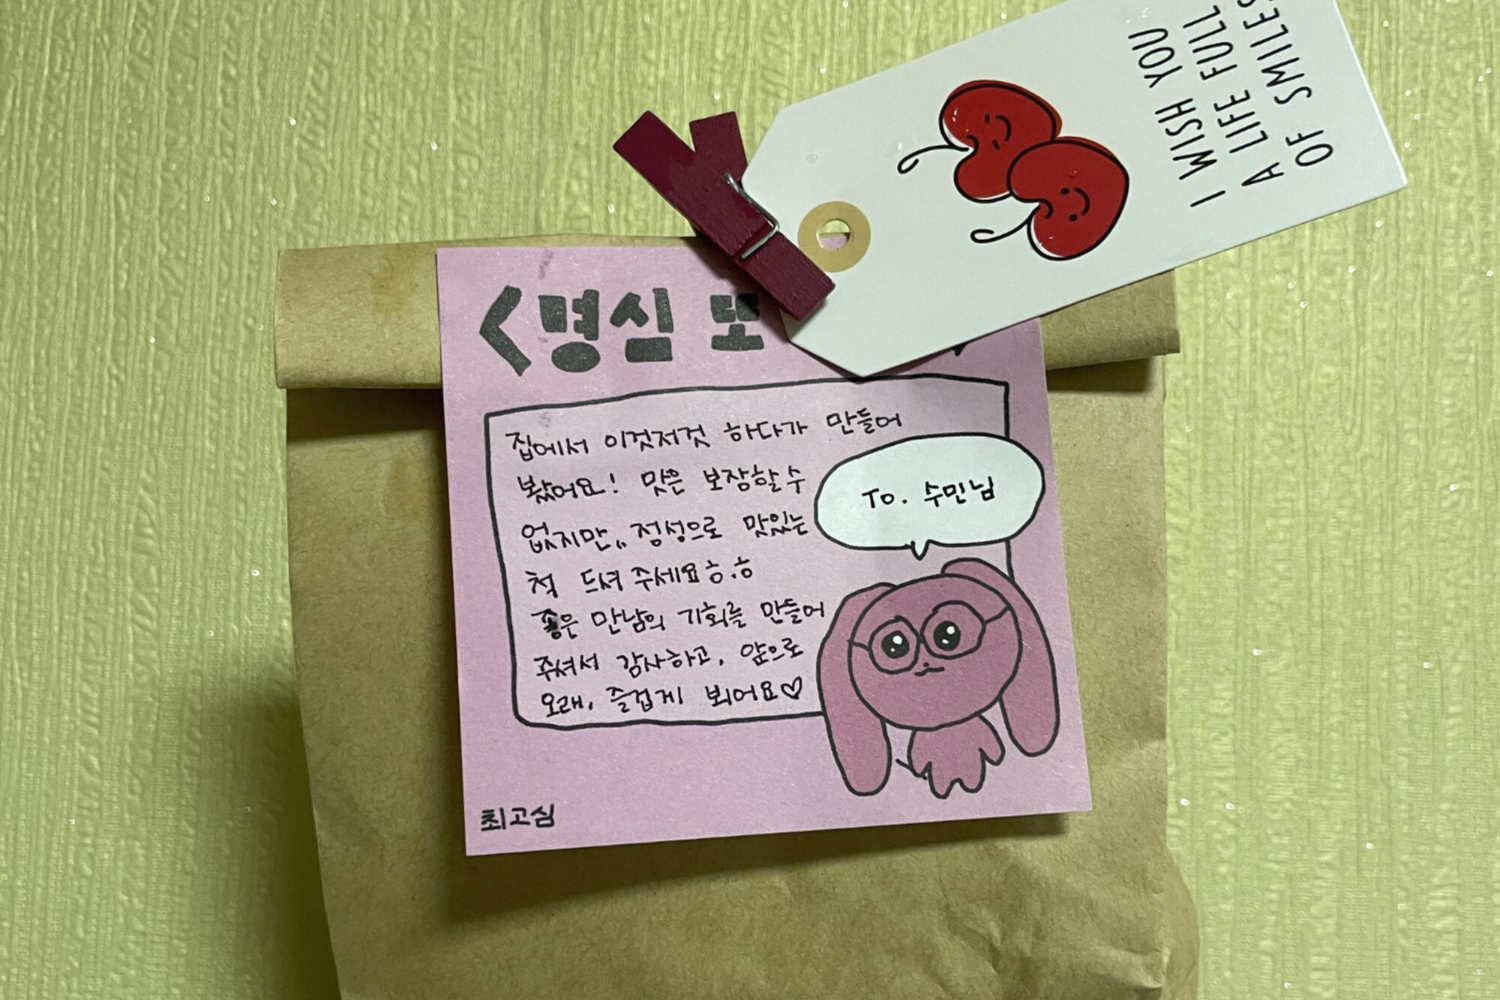 I WISH YOU
A LIFE FULL
OF SMILES
<명신 또
집에서 이것저것 하다가 만들어
봤어요! 맛은 보장할 수
없지만,, 정성으로 맛있는
척 드셔 주세요ㅎ.ㅎ
좋은 만남의 기회를 만들어
주셔서 감사하고, 앞으로
오래, 즐겁게 뵈어요♡
To. 수민님
최고심